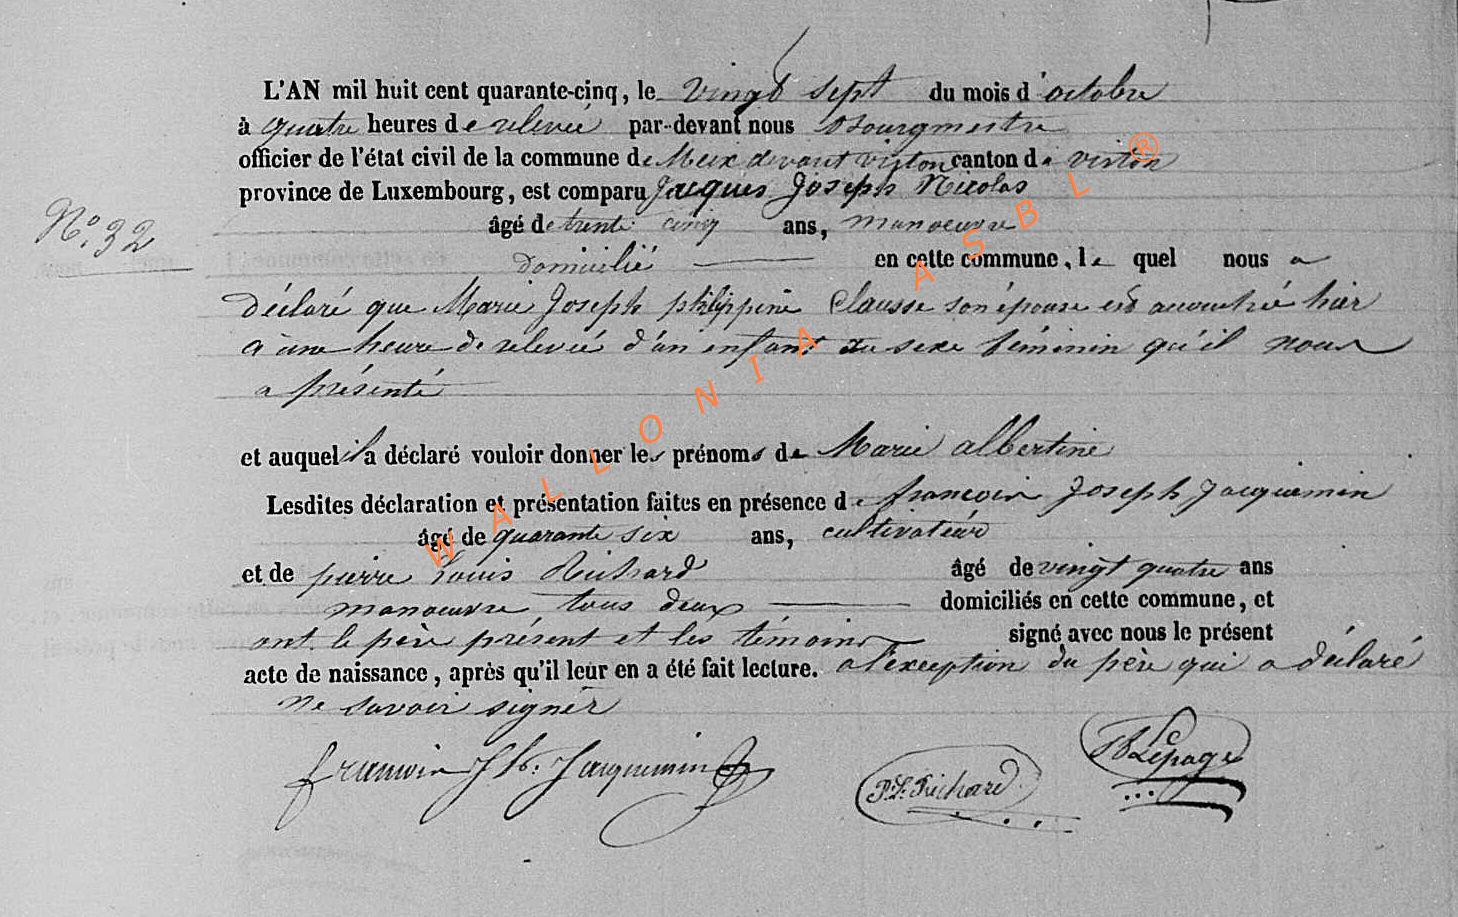 L'AN mil huit cent quarante-cinq, le vingt sept du mois d'octobre
à quatre heures de relevée par-devant nous Bourgmestre
officier de l'état civil de la commune de Meix devant virton canton de virton
province de Luxembourg, est comparu Jacques Joseph Nicolas
N° 32
âgé de trente cinq ans, manoeuvre
domicilié en cette commune, le quel nous a
déclaré que Marie Joseph philippine Clausse son épouse est accouchée hier
a une heure de relevée d'un enfant du sexe féminin qu'il nous
a présenté
et auquel il a déclaré vouloir donner les prénoms de Marie albertine
Lesdites déclaration et présentation faites en présence de françois Joseph Jacquemin
âgé de quarante six ans, cultivateur
et de pierre Louis Richard âgé de vingt quatre ans
manoeuvre tous deux domiciliés en cette commune, et
ont le père présent et les témoins signé avec nous le présent
acte de naissance, après qu'il leur en a été fait lecture. a l'exception du père qui a déclaré
ne savoir signer
françois Jh. Jacquemin
P. L. Richard
Lepage
WALLONIA ASBL ®